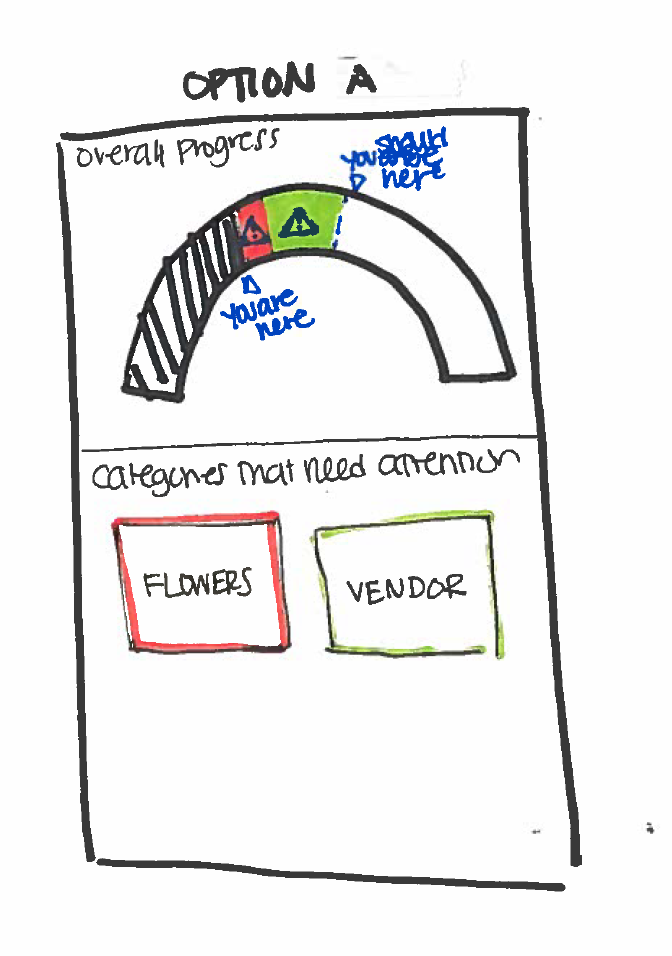 OPTION A
Overall Progress
You should be
here
You are
here
Categories that need attention
FLOWERS
VENDOR